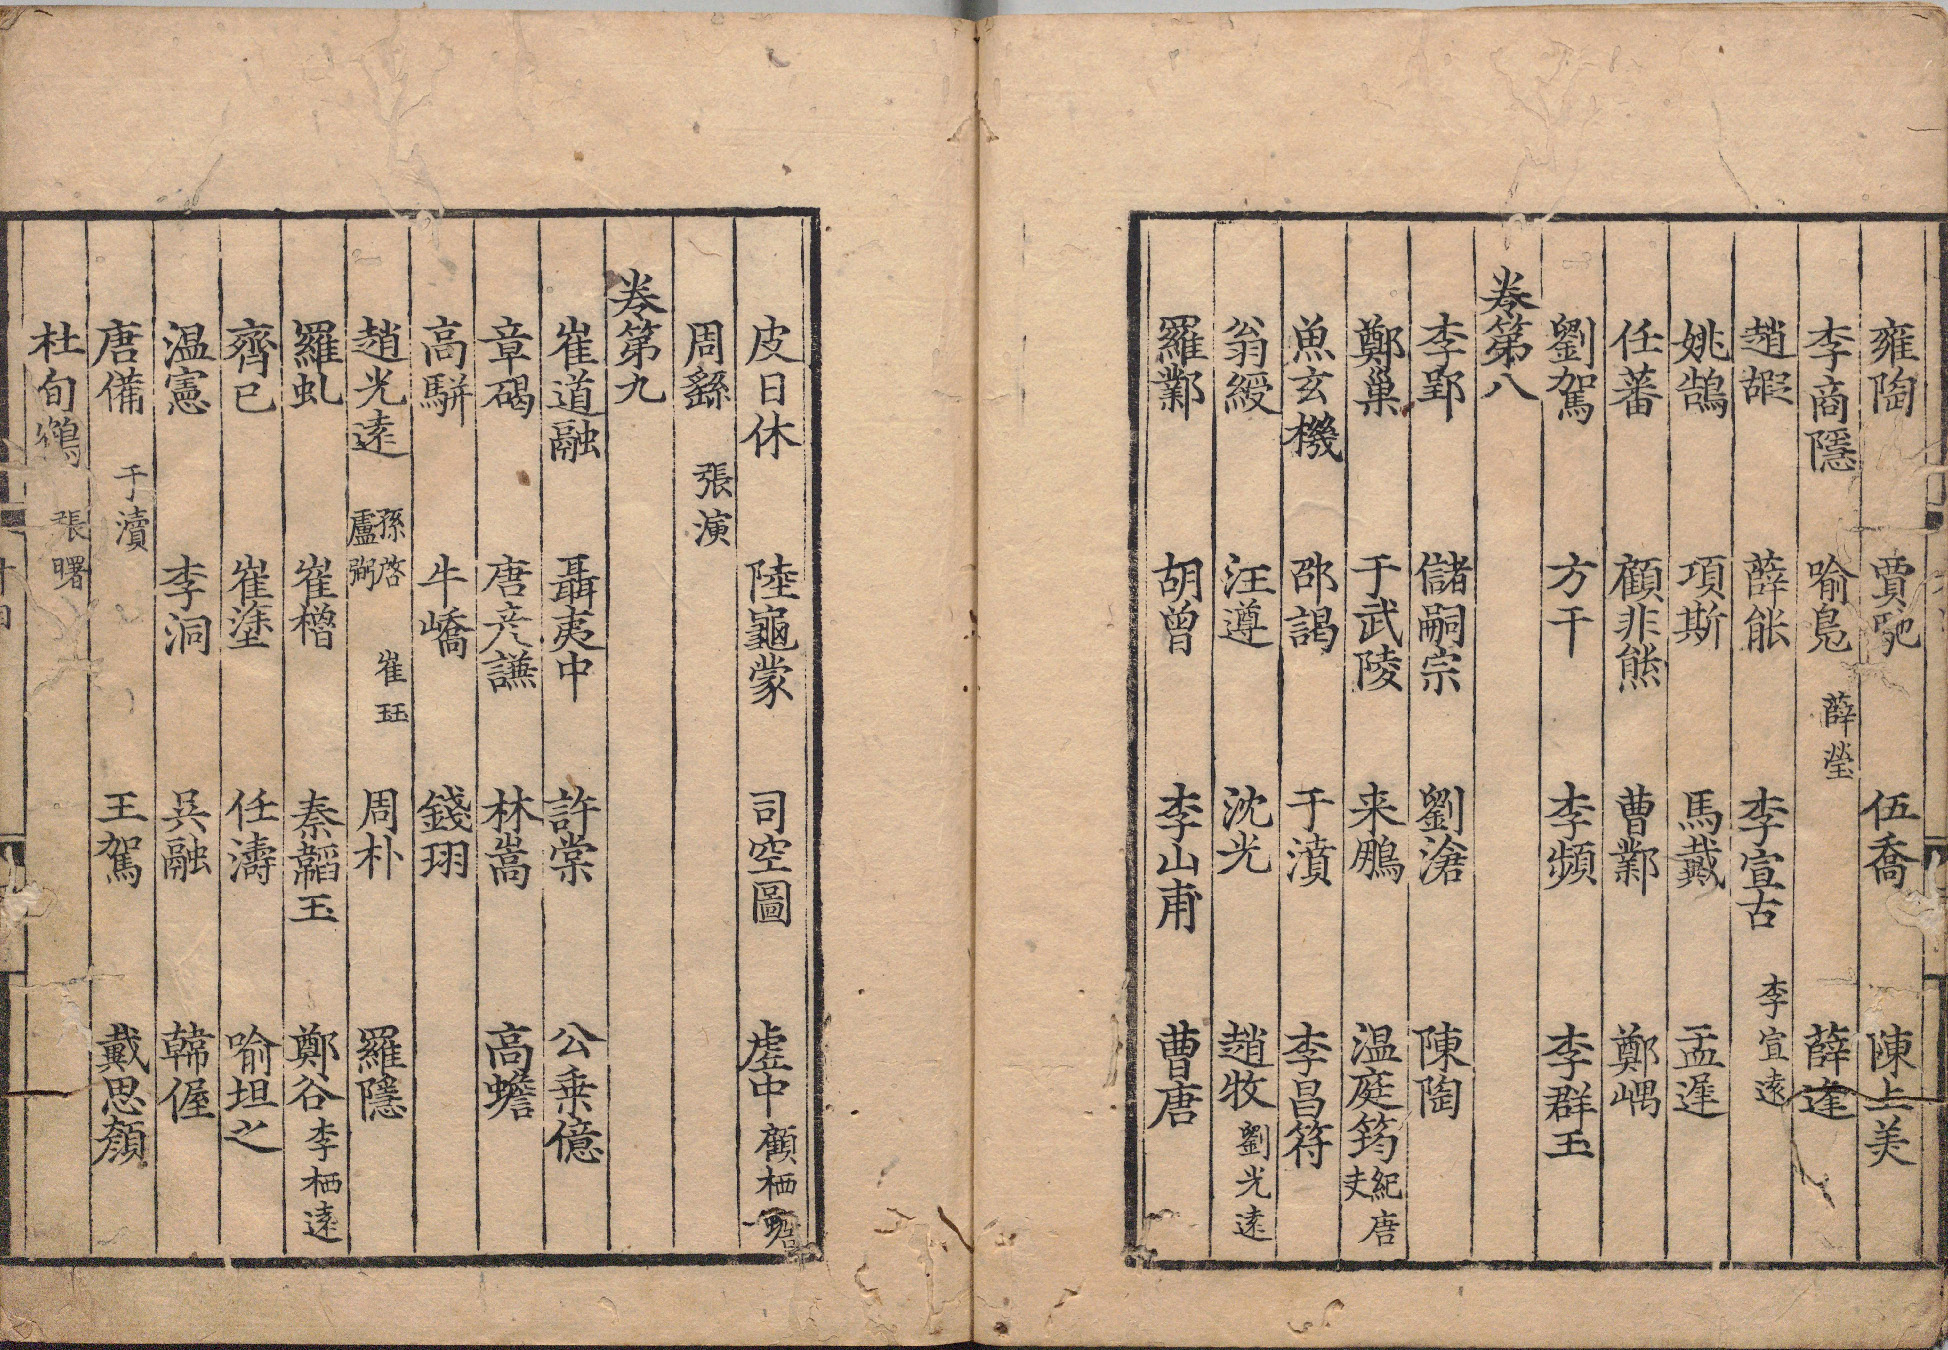 雍陶 賈馳 伍喬 陳上美
李商隱 喻鳧 薛瑩 薛逢
趙嘏 薛能 李宣古 李宣遠
姚鵠 項斯 馬戴 孟遲
任蕃 顧非熊 曹鄴 鄭嵎
劉駕 方干 李頻 李群玉
卷第八
李郢 儲嗣宗 劉滄 陳陶
鄭巢 于武陵 来鵬 温庭筠 紀唐夫
魚玄機 邵謁 于濆 李昌符
翁綬 汪遵 沈光 趙牧 劉光遠
羅鄴 胡曾 李山甫 曹唐
皮日休 陸龜蒙 司空圖 虗中 顧栖蟾
周繇 張演
卷第九
崔道融 聶夷中 許棠 公乗億
章碣 唐彦謙 林嵩 高蟾
高駢 牛嶠 錢珝
趙光逺 孫啓 盧弼 崔珏 周朴 羅隱
羅虬 崔櫓 秦韜玉 鄭谷 李栖遠
齊己 崔塗 任濤 喻坦之
温憲 李洞 吳融 韓偓
唐備 于瀆 王駕 戴思顔
杜旬鶴 張曙